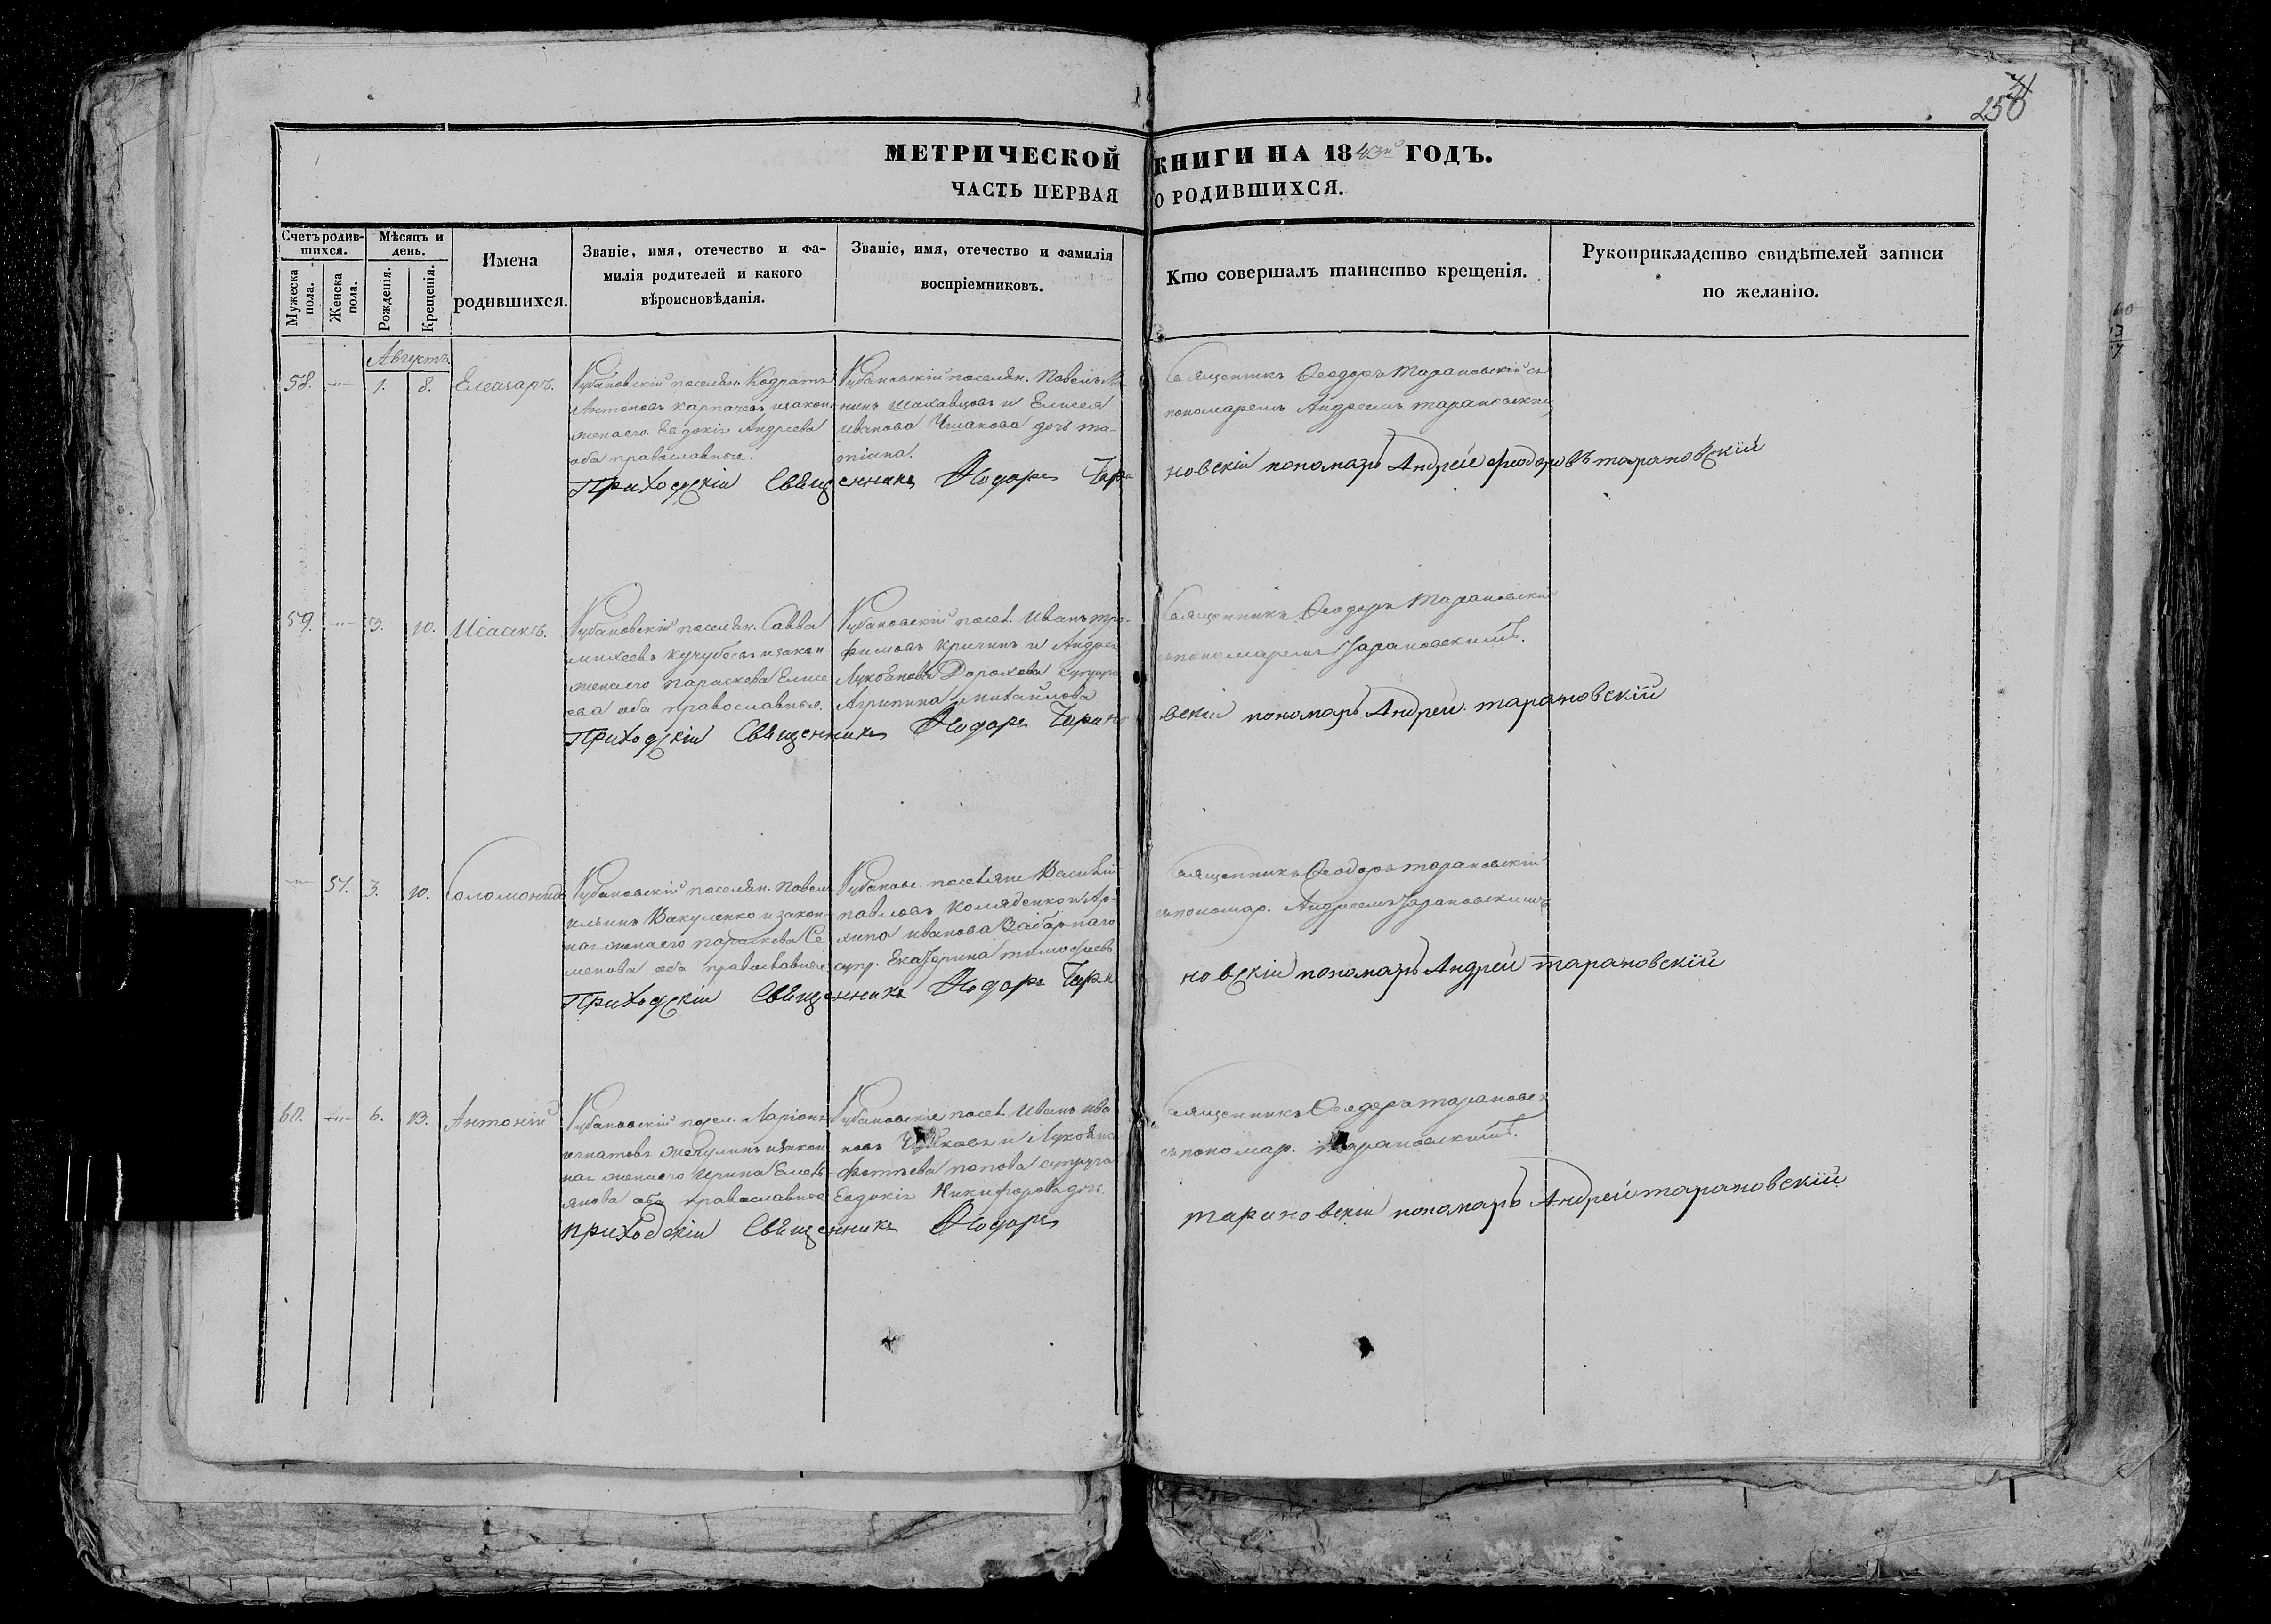 250
МЕТРИЧЕСКОЙ КНИГИ НА 1843й ГОДЪ.
ЧАСТЬ ПЕРВАЯ О РОДИВШИХСЯ.
Счетъ родив-
шихся.
Мужеска
пола.
Женска
пола.
Мѣсяцъ и
день.
Рожденія.
Крещенія.
Имена
родившихся.
Званіе, имя, отечество и фа-
милія родителей и какого
вѣроисповѣданія.
Званіе, имя, отечество и фамилія
воспріемниковъ.
Кто совершалъ таинство крещенія.
Рукоприкладство свидѣтелей записи
по желанію.
Августъ
58. 1. 8. Елеазаръ.
Кубановскій поселян. Кодратъ
Антоновъ Карпачевъ изакон.
женаего Евдокія Андреева
оба православные.
Кубановскій поселян. Павелъ
и Елисея
Иванова Чмакова дочь та-
тіана.
Священникъ Феодоръ Тарановскій съ
пономаремъ Андреемъ Тарановским
Приходскіи Священникъ Ѳеодоръ Тара
новскіи пономарь Андреи феодоровъ тарановскій
59. 3. 10. Исаакъ.
Кубановскій поселян. Савва
михеевъ Кучубеевъ изакон
женаего параскева Елисе
ева оба православные.
Кубановскій посел. Иванъ тро-
фимовъ Кричинъ и Андрея
Лукьянова Дорохова супруга
Агрипина михайлова
Священникъ Феодоръ Тарановскій
съпономаремъ Тарановскимъ.
Приходскіи Священникъ Ѳеодоръ Тарано
вскіи пономарь Андреи тарановскій
51. 3. 10. Соломонида
Кубановскій поселян. Павелъ
ильинъ Вакуленко изакон-
ная женаего параскева Се
менова оба православные
Кубановс. поселяне Василій
павловъ Коляденко и Ар-
хипа иванова Забарнаго
супр. Екатерина тимофеева
Священникъ Феодоръ Тарановскій
съпономар. Андреемъ Тарановскимъ
Приходскіи Священникъ Ѳеодоръ Тара
новскіи пономарь Андреи тарановскій
60. 6. 13. Антоній
Кубановскій посел. Ларіонъ
игнатовъ изакон
ная женаего Ирина Емель-
янова оба православные
Кубановскіе посел. Иванъ ива
новъ и Лукьяна
фотіева попова супруга
Евдокія Никифорова дочь.
Священникъ Феодоръ Тарановск
съпономар. Тарановскимъ.
приходскіи Священникъ Ѳеодоръ
тарановскіи пономарь Андреи тарановскій